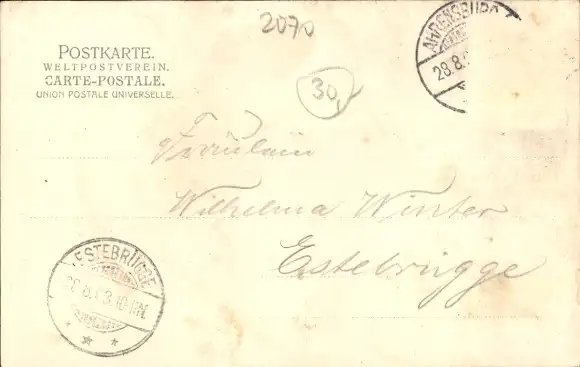 2070
POSTKARTE.
WELTPOSTVEREIN.
CARTE-POSTALE.
UNION POSTALE UNIVERSELLE.
AHRENSBURG
28.8.
30,
Fräulein
Wilhelma Winter
Estebrügge
ESTEBRÜGGE
8.03.10-11N.